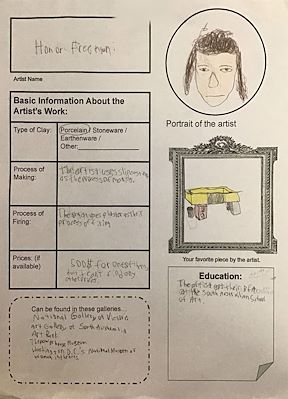 Honor Freeman
Artist Name
Basic Information About the
Artist's Work:
Type of Clay:
Porcelain / Stoneware /
Earthenware /
Other:
Process of
Making:
The artist uses slipcasting
as the process of making.
Process of
Firing:
process of firing
Prices: (if
available)
500$ for one of
Can be found in these galleries...
National Gallery of Victoria
Art Gallery of South Australia
Art Bank
Museum
Washington D.C.'s National Museum of
Women in the Arts
Portrait of the artist
Your favorite piece by the artist.
Education:
The artist got their BFA
at the South Australian School
of Art.